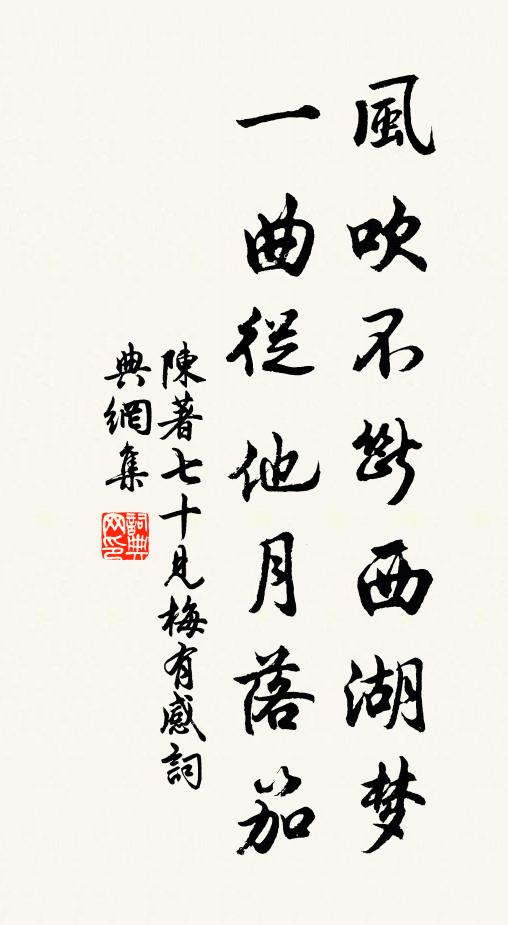 風吹不斷西湖梦
一曲從他月落笳
陳著七十見梅有感詞
典網集
詞典
网印